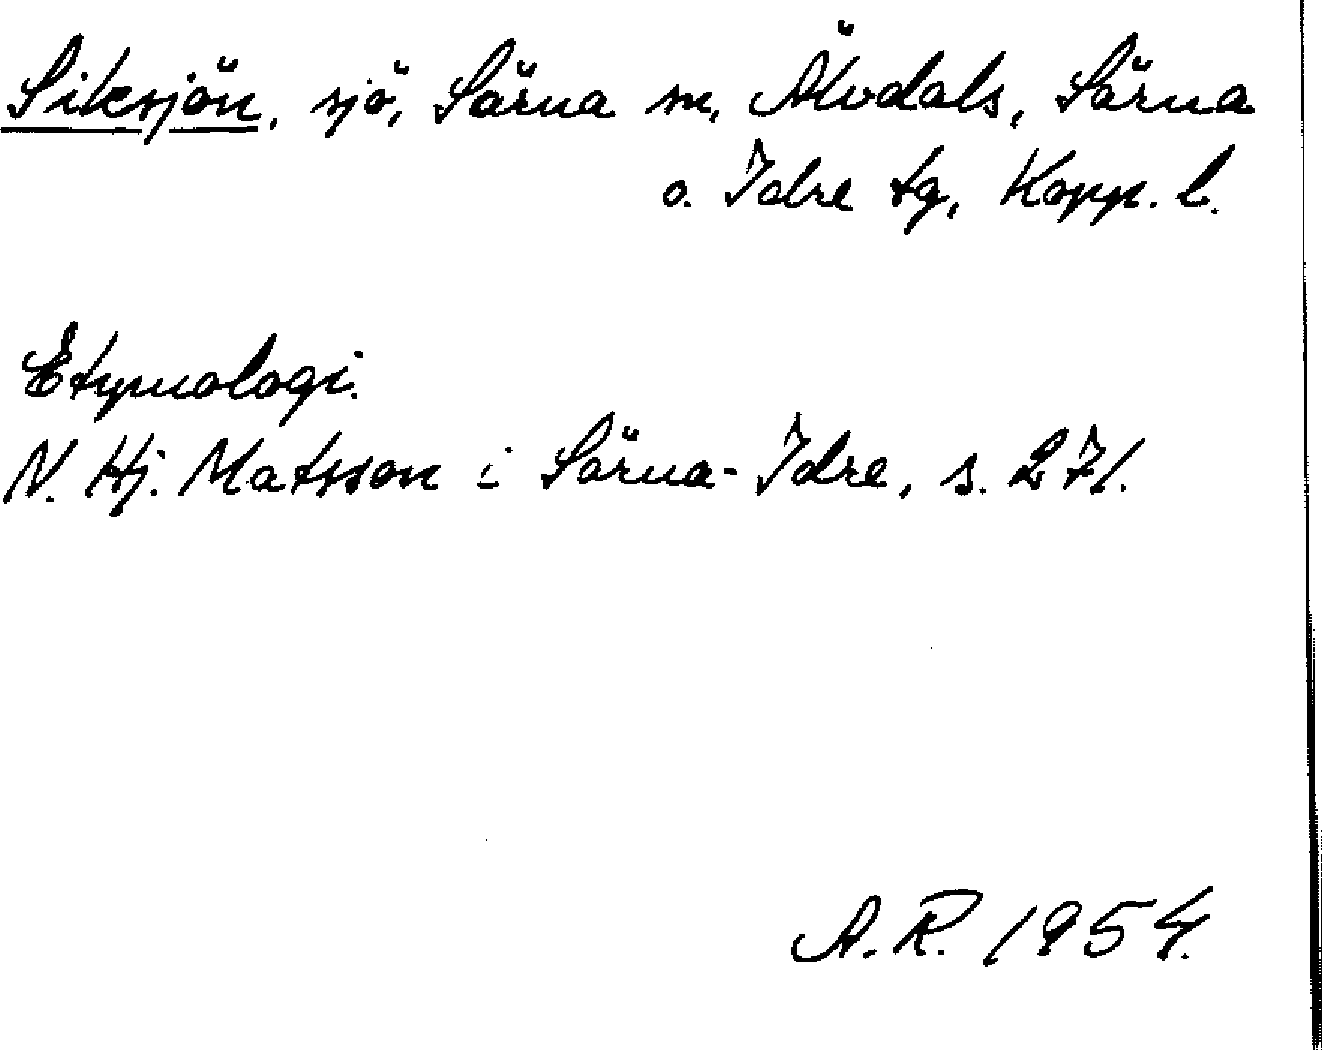 Siksjön, sjö, Särna sn, Älvdals, Särna
o. Idre tg, Kopp. l.
Etymologi.
N. Hj. Matsson i Särna-Idre, s. 271.
A. R. 1954.